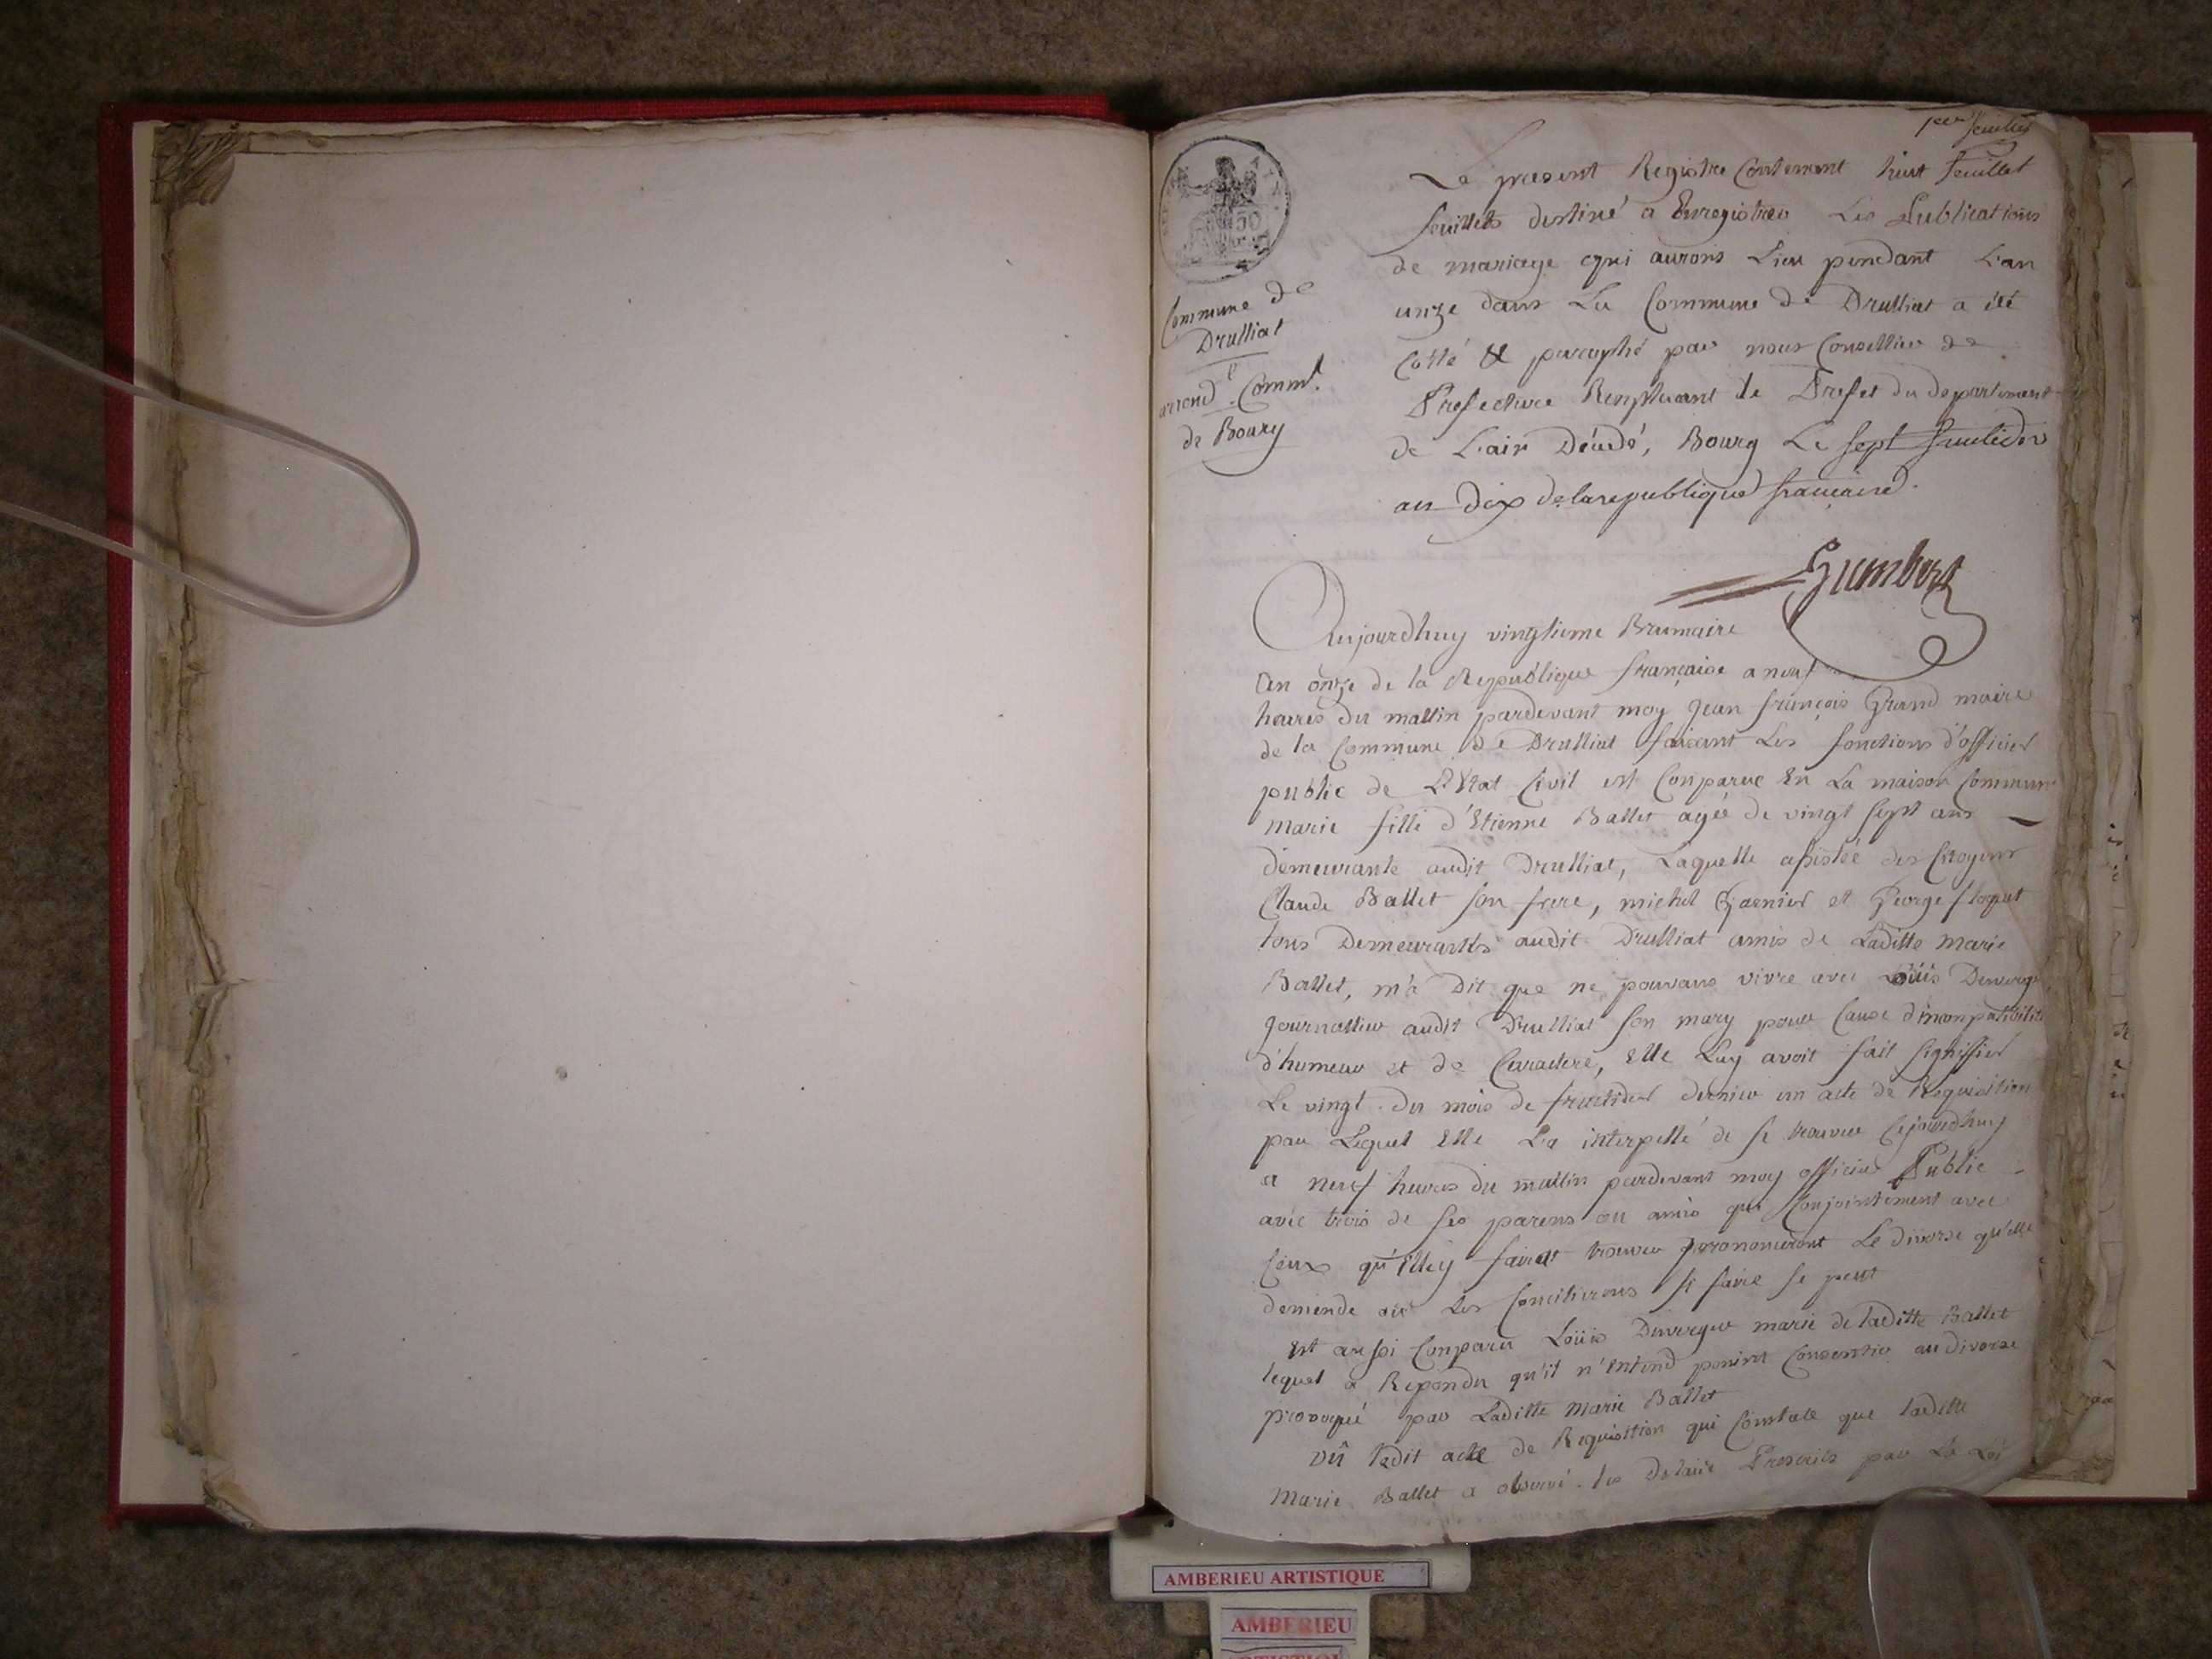 1er feuillet
50
Commune de
Drulliat
arrond. Comml.
de Bourg
Le present Registre Contenant huit feuillet
feuillets destiné a Enregistrer Les Publications
de mariage qui aurons Lieu pendant L'an
unze dans La Commune de Drulliat a été
Cotté & paraphé par nous Conseiller de
Prefecture Remplacant le Prefet du departement
de L'ain Décédé, Bourg Le sept fructidor
an dix de la republique française.
Humbert
Aujourdhuy vingtieme Brumaire
an onze de la Republique française a neuf
heures du mattin pardevant moy Jean françois Grand maire
de la Commune de Drulliat faisant Les fonctions d'officier
public de L'Etat Civil est Conparue En La maison Commune
marie fille d'Etienne Ballet agée de vingt sept ans
demeurante audit Drulliat, Laquelle assistée des Citoyens
Claude Ballet son frere, michel Garnier et George floquet
tous Demeurants audit Drulliat amis de Laditte marie
Ballet, m'a Dit que ne pouvans vivre avec Loüis Duverger
Journallier audit Drulliat son mary pour Cause d'inconpatibilité
d'humeur et de Caractere, Elle Luy avoit fait signiffier
Le vingt du mois de fructidor dernier un acte de Requisition
par Lequel Elle L'a interpellé de se trouver Cejourdhuy
a neuf heures du mattin pardevant moy officier Public
avec trois de ses parens ou amis qui Conjointement avec
Ceux qu'Elle y fairat trouver prononceront Le divorse qu'elle
demende ou Les Concilierons si faire se peut
Est aussi Conparu Loüis Duverger marié de laditte Ballet
lequel a Repondu qu'il n'Entend point Consentir au divorse
provoqué par Laditte Marie Ballet
vû ledit acte de Requisition qui Constate que laditte
Marie Ballet a observé les Delais Prescrits par La Loi
AMBERIEU ARTISTIQUE
AMBERIEU
ARTISTIQUE